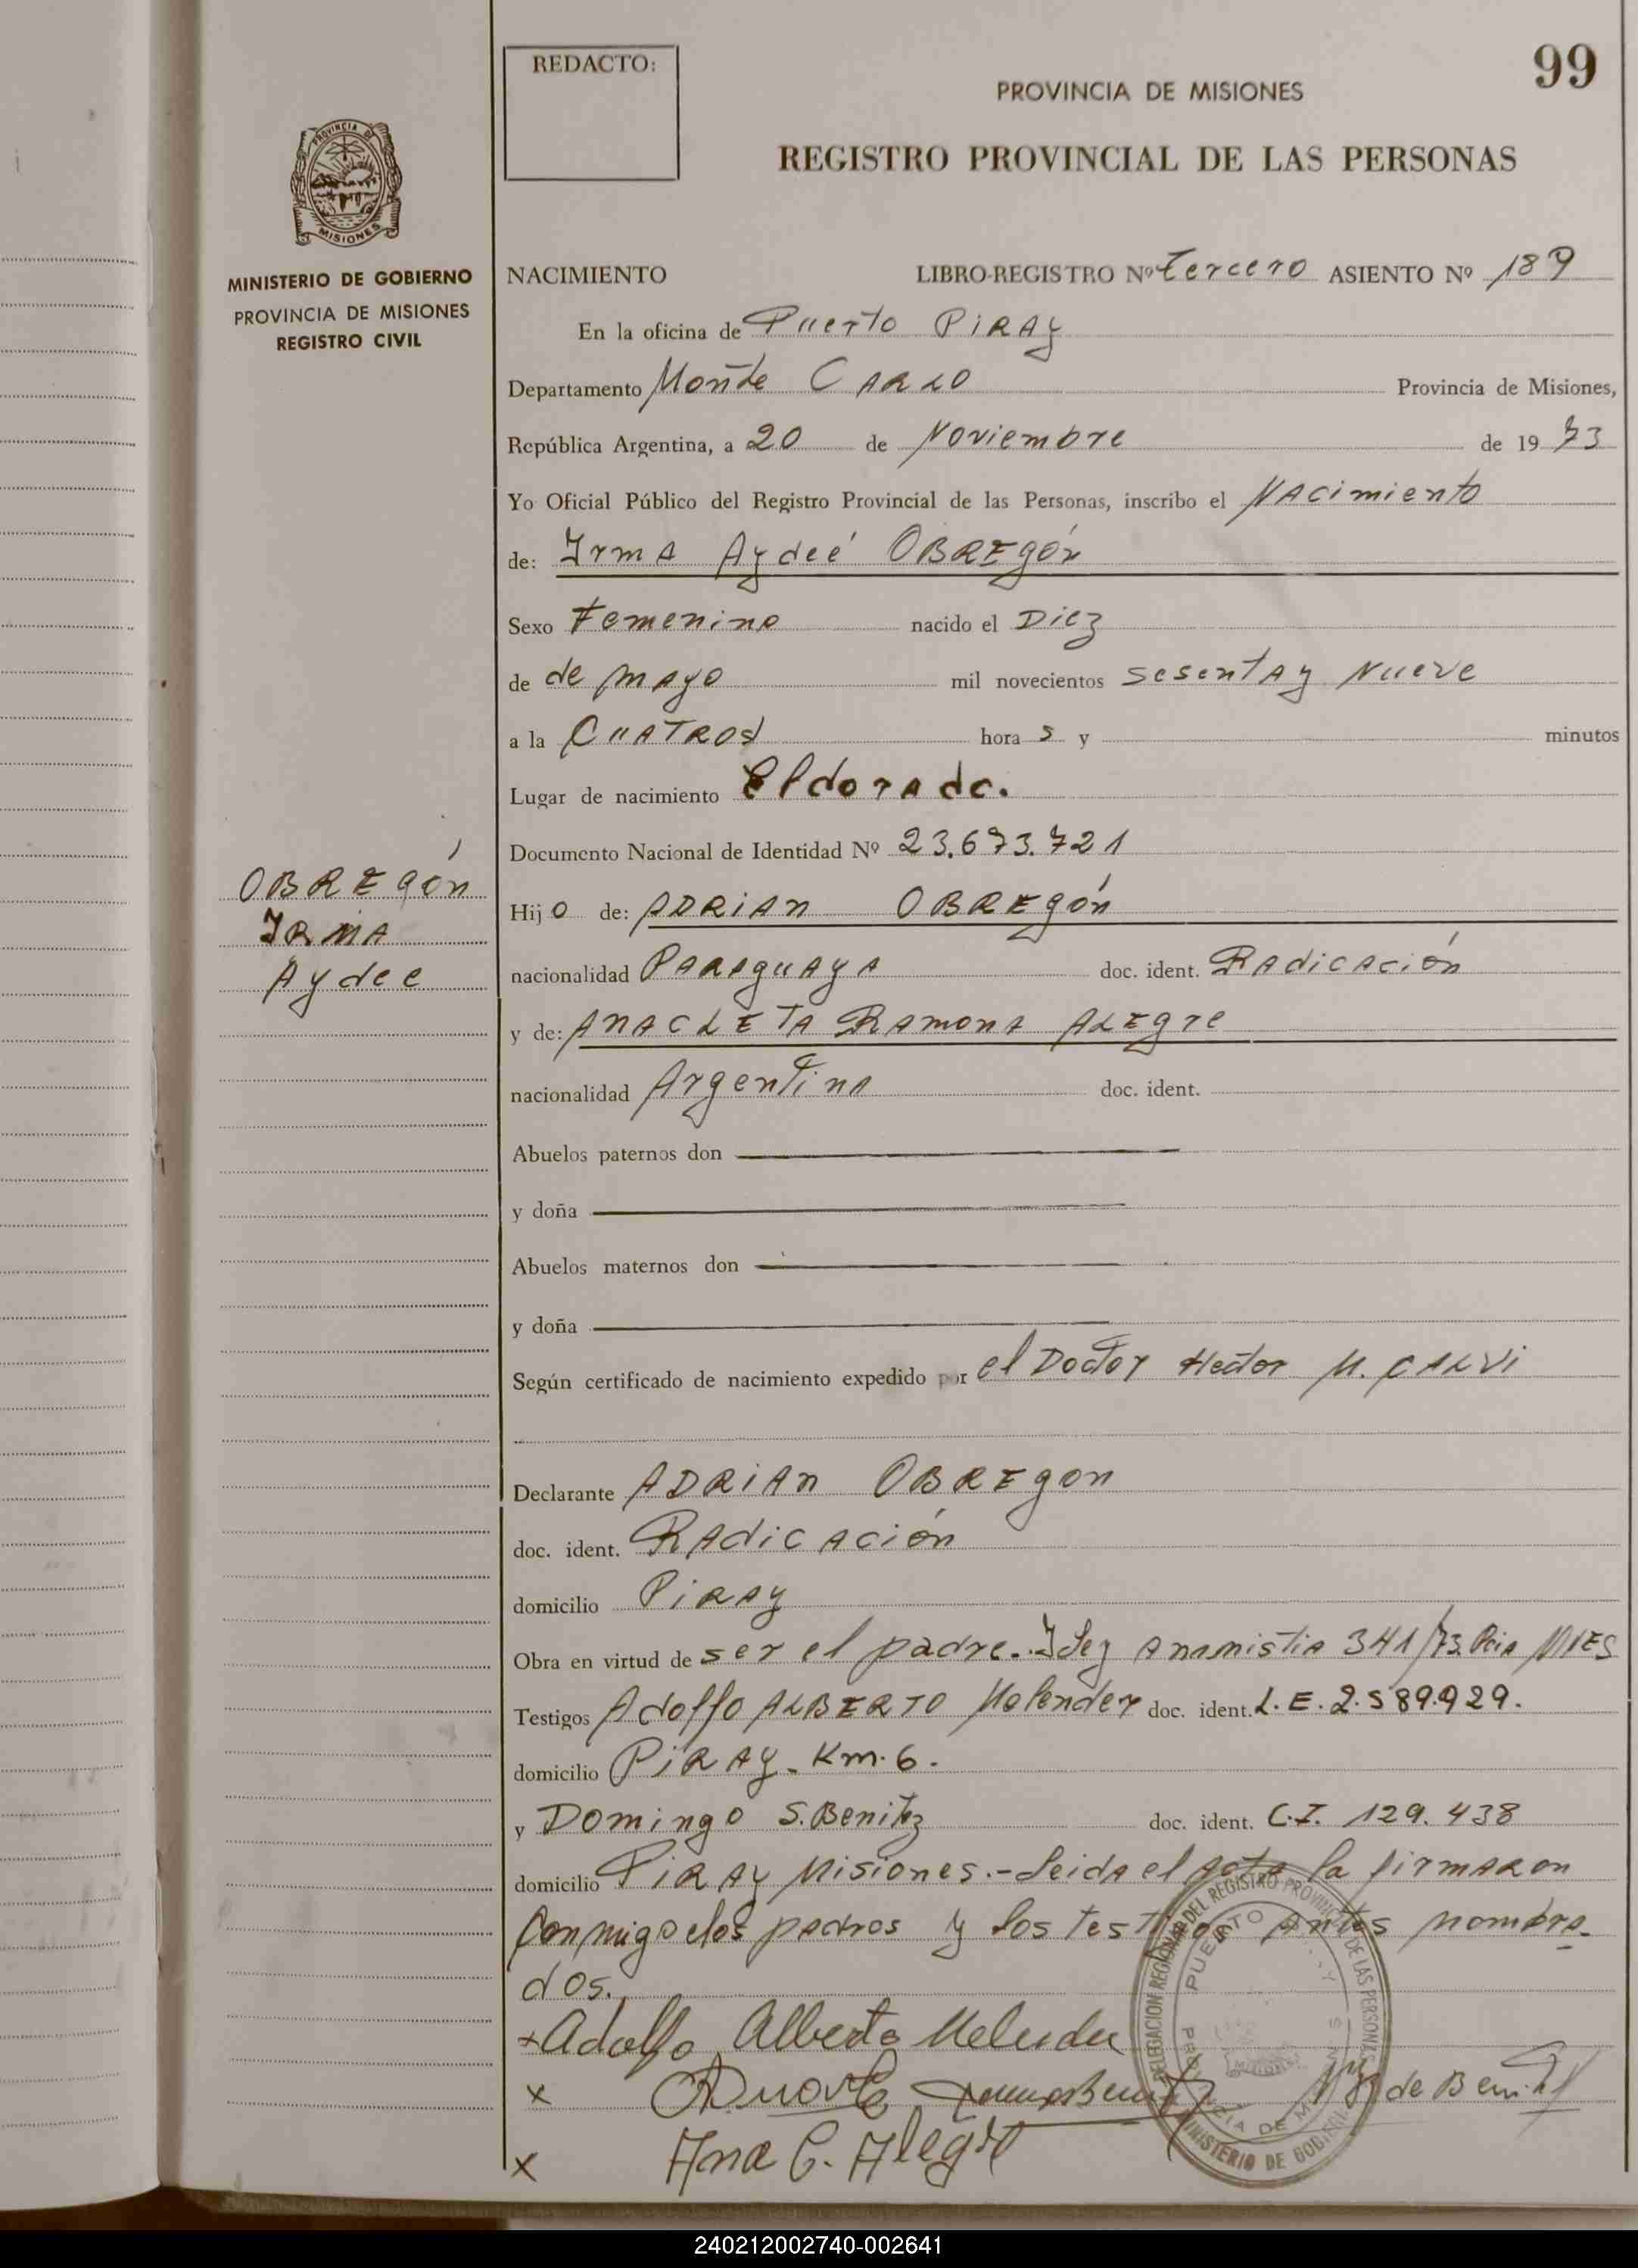 REDACTO:
99
PROVINCIA DE MISIONES
REGISTRO PROVINCIAL DE LAS PERSONAS
PROVINCIA DE
MISIONES
MINISTERIO DE GOBIERNO
PROVINCIA DE MISIONES
REGISTRO CIVIL
NACIMIENTO LIBRO-REGISTRO Nº tercero ASIENTO Nº 189
En la oficina de Puerto PiRAy
Departamento Monte CARLO Provincia de Misiones,
República Argentina, a 20 de Noviembre de 19 73
Yo Oficial Público del Registro Provincial de las Personas, inscribo el NAcimiento
de: IrmA Aydeé OBREgón
Sexo Femenino nacido el Diez
de de mAyo mil novecientos sesentAy Nueve
a la CuATROs hora s y minutos
Lugar de nacimiento Eldorado.
Documento Nacional de Identidad Nº 23.673.721
OBREgón
IRMA
Aydee
Hijo de: ADRiAn OBREgón
nacionalidad PARAguAyA doc. ident. RAdicAción
y de: ANACLETA RAmonA ALEgre
nacionalidad ArgentinA doc. ident.
Abuelos paternos don
y doña
Abuelos maternos don
y doña
Según certificado de nacimiento expedido por el Doctor Hector M. CALVi
Declarante ADRiAn OBREgon
doc. ident. RAdicAción
domicilio PiRAy
Obra en virtud de ser el padre. Ley Anmistia 341/73. Pcia MNES
Testigos Adolfo ALBERTO Melender doc. ident. L.E. 2.589.929.
domicilio PiRAy. Km. 6.
y Domingo S. Benitez doc. ident. C.I. 129.438
domicilio PiRAy Misiones.- Leida el Acta la firmARon
Conmigo los padres y los testigos Antes nombra-
dos.
x Adolfo Alberto Melender
x de Benitez
x Ana C. Alegre
DELEGACION REGIONAL DEL REGISTRO PROVINCIAL DE LAS PERSONAS
PUERTO
PROVINCIA DE MISIONES
MINISTERIO DE GOBIERNO
240212002740-002641